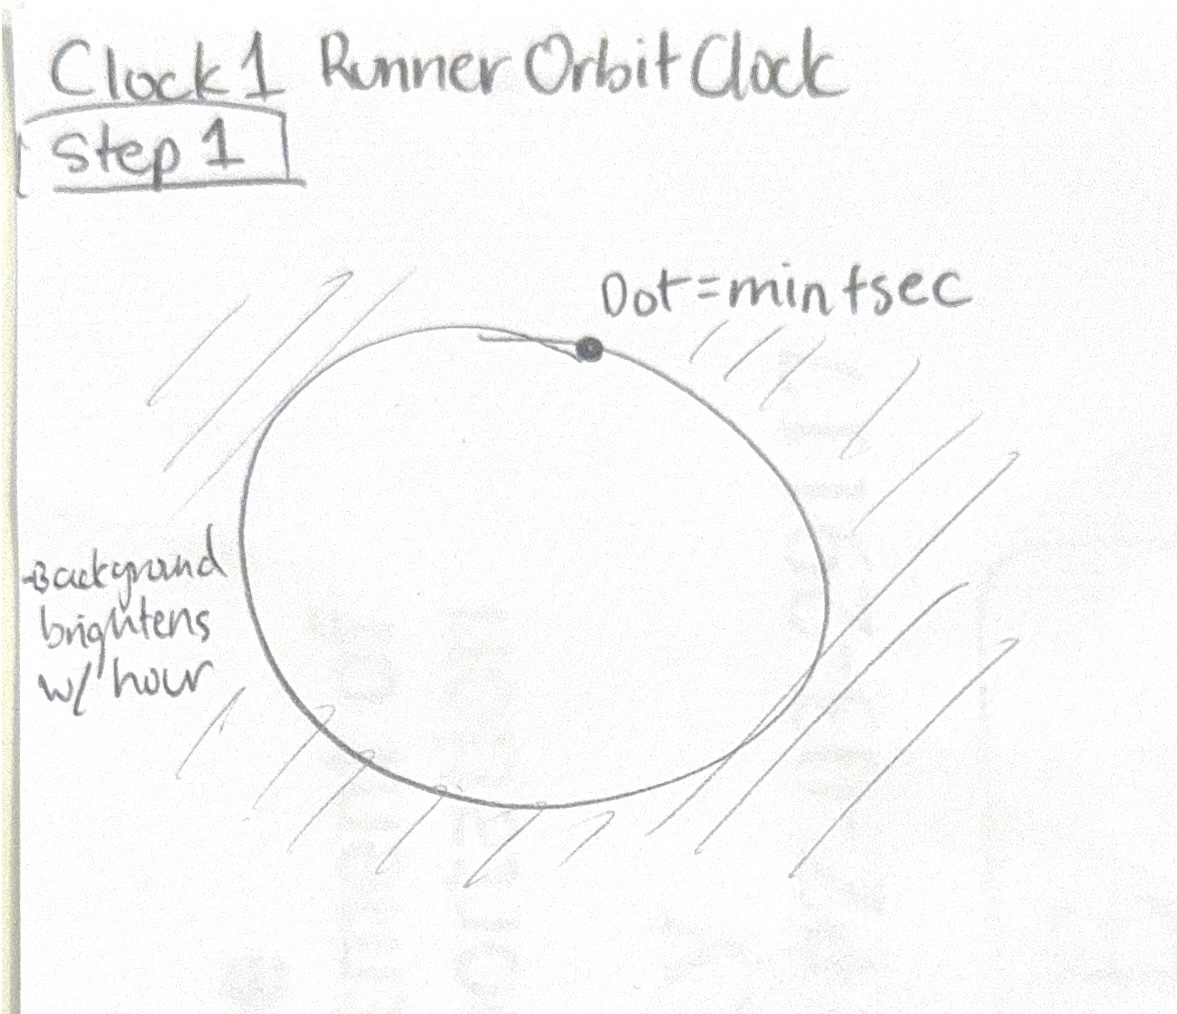 Clock 1 Runner Orbit Clock
Step 1
Dot = min + sec
Background
brightens
w/ hour